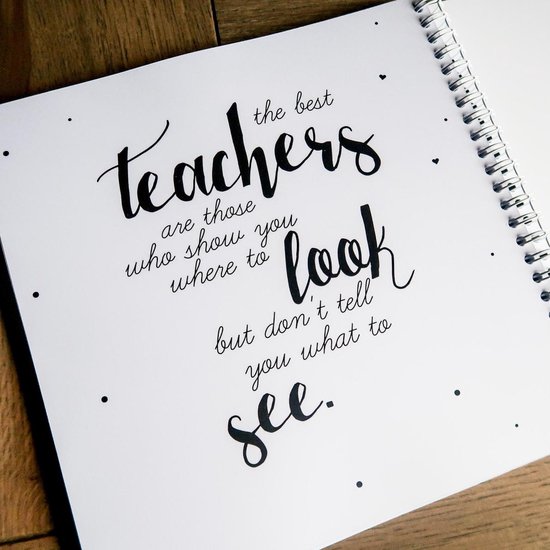 the best
teachers
are those
who show you
where to
look
but don't tell
you what to
see.